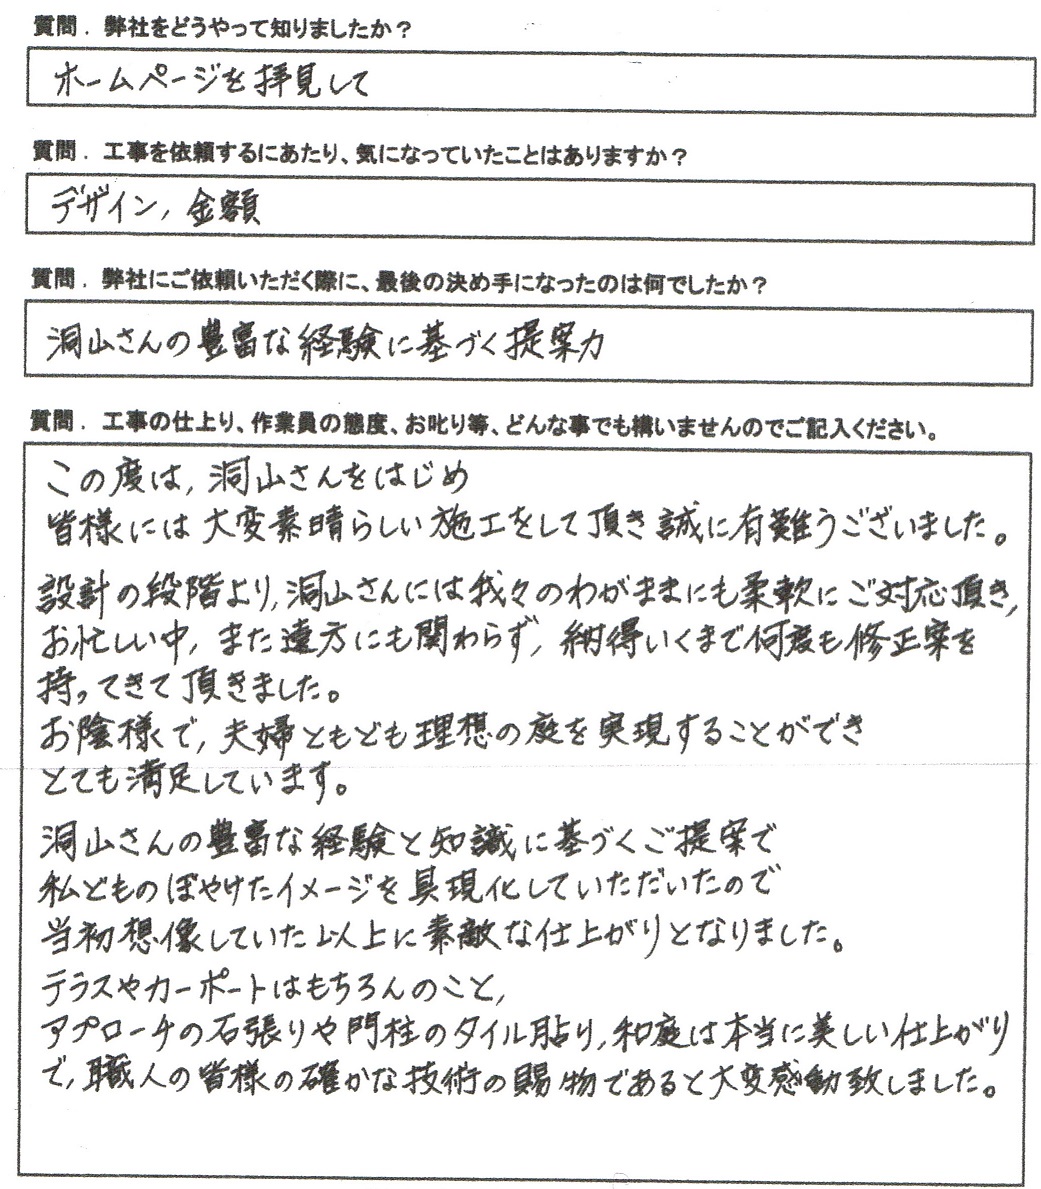 質問．弊社をどうやって知りましたか？
ホームページを拝見して
質問．工事を依頼するにあたり、気になっていたことはありますか？
デザイン, 金額
質問．弊社にご依頼いただく際に、最後の決め手になったのは何でしたか？
洞山さんの豊富な経験に基づく提案力
質問．工事の仕上り、作業員の態度、お叱り等、どんな事でも構いませんのでご記入ください。
この度は, 洞山さんをはじめ
皆様には大変素晴らしい施工をして頂き誠に有難うございました。
設計の段階より, 洞山さんには我々のわがままにも柔軟にご対応頂き,
お忙しい中, また遠方にも関わらず, 納得いくまで何度も修正案を
持ってきて頂きました。
お陰様で, 夫婦ともども理想の庭を実現することができ
とても満足しています。
洞山さんの豊富な経験と知識に基づくご提案で
私どものぼやけたイメージを具現化していただいたので
当初想像していた以上に素敵な仕上がりとなりました。
テラスやカーポートはもちろんのこと,
アプローチの石張りや門柱のタイル貼り, 和庭は本当に美しい仕上がり
で, 職人の皆様の確かな技術の賜物であると大変感動致しました。